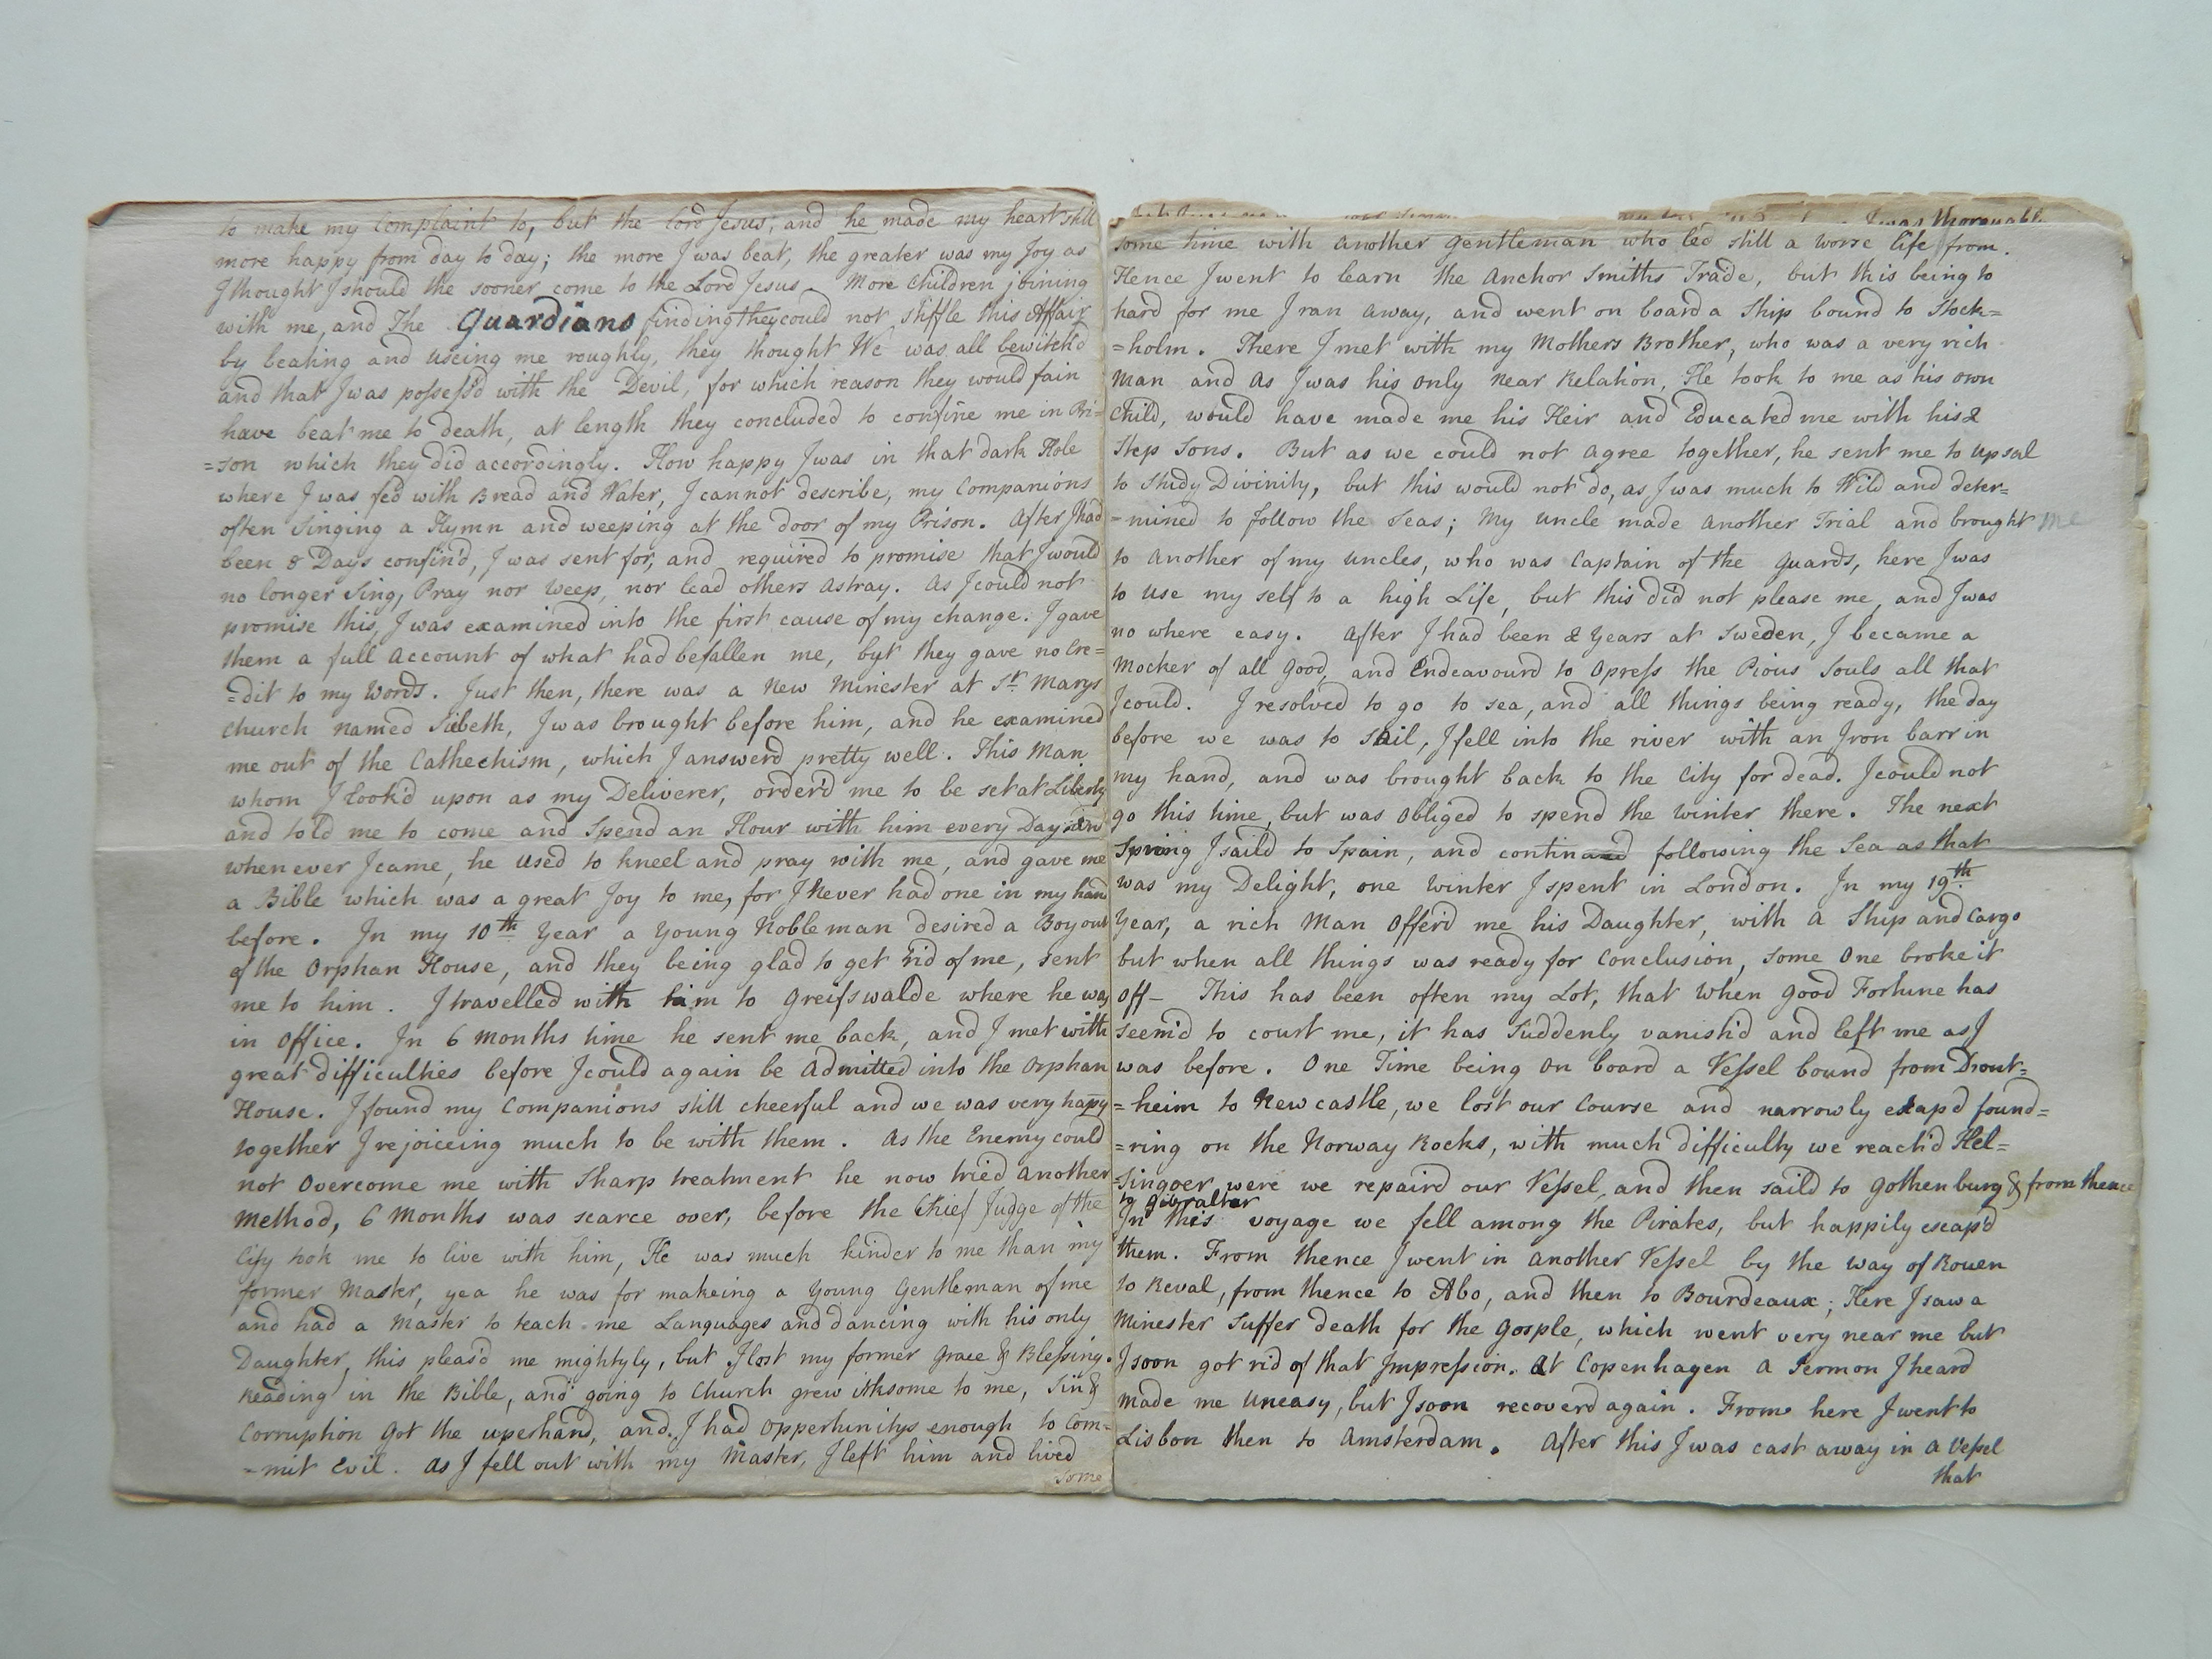 to make my Complaint to, but the Lord Jesus; and he made my heart still
more happy from day to day; the more I was beat, the greater was my Joy as
I thought I should the sooner come to the Lord Jesus. More Children joining
with me, and The Guardians finding they could not stiffle this Affair
by beating and useing me roughly, they thought We was all bewitch'd
and that I was possess'd with the Devil, for which reason they would fain
have beat me to death, at length they concluded to confine me in Pri=
=son which they did accordingly. How happy I was in that dark Hole
where I was fed with Bread and Water, I cannot describe, my Companions
often Singing a Hymn and weeping at the door of my Prison. After I had
been 8 Days confin'd, I was sent for, and required to promise that I would
no longer Sing, Pray nor Weep, nor lead others astray. As I could not
promise this, I was examined into the first cause of my change. I gave
them a full account of what had befallen me, but they gave no Cre=
=dit to my Words. Just then, there was a New Minester at St. Marys
Church Named Siebeth, I was brought before him, and he examined
me out of the Cathechism, which I answerd pretty well. This Man
whom I look'd upon as my Deliverer, order'd me to be set at Liberty
and told me to come and Spend an Hour with him every Day, and
whenever I came, he used to kneel and pray with me, and gave me
a Bible which was a great Joy to me, for I Never had one in my hand
before. In my 10th Year a Young Nobleman desired a Boy out
of the Orphan House, and they being glad to get rid of me, sent
me to him. I travelled with him to Greifswalde where he was
in Office. In 6 Months time he sent me back, and I met with
great difficulties before I could again be Admitted into the Orphan
House. I found my Companions still cheerful and we was very happy
together I rejoiceing much to be with them. As the Enemy could
not Overcome me with Sharp treatment he now tried another
Method, 6 Months was scarce over, before the Chief Judge of the
City took me to live with him, He was much kinder to me than my
former Master, yea he was for makeing a Young Gentleman of me
and had a Master to teach me Languages and dancing with his only
Daughter, this pleas'd me mightyly, but I lost my former Grace & Blessing.
Reading in the Bible, and going to Church grew irksome to me, Sin &
Corruption Got the uperhand, and I had Oppertunitys enough to Com=
=mit Evil. As I fell out with my Master, I left him and lived
Some
I was thoroughly
Some time with another Gentleman who led still a worse life from
Hence I went to learn the Anchor Smiths Trade, but this being to
hard for me I ran away, and went on board a Ship bound to Stock=
=holm. There I met with my Mothers Brother, who was a very rich
Man and as I was his only Near Relation, He took to me as his own
Child, would have made me his Heir and Educated me with his 2
Step Sons. But as we could not agree together, he sent me to Upsal
to Study Divinity, but this would not do, as I was much to Wild and deter=
=mined to follow the Seas; My uncle made another Trial and brought me
to another of my uncles, who was Captain of the Guards, here I was
to use my self to a high Life, but this did not please me, and I was
no where easy. After I had been 2 Years at Sweden, I became a
Mocker of all Good, and Endeavourd to Opress the Pious Souls all that
I could. I resolved to go to sea, and all things being ready, the day
before we was to Sail, I fell into the river with an Iron barr in
my hand, and was brought back to the City for dead. I could not
go this time, but was Obliged to spend the winter there. The next
Spring I saild to Spain, and continued following the Sea as that
was my Delight, one Winter I spent in London. In my 19th
Year, a rich Man Offer'd me his Daughter, with a Ship and Cargo
but when all things was ready for Conclusion, Some One broke it
Off— This has been often my Lot, that when good Fortune has
Seem'd to court me, it has Suddenly vanish'd and left me as I
was before. One Time being on board a Vessel bound from Dront=
=heim to Newcastle, we lost our Course and narrowly escap'd found=
=ring on the Norway Rocks, with much difficulty we reach'd Hel=
=Singoer were we repaird our Vessel, and then saild to Gothenburg & from thence
to Gibralter
In this voyage we fell among the Pirates, but happily escap'd
them. From thence I went in another Vessel by the way of Rouen
to Reval, from thence to Abo, and then to Bourdeaux; Here I saw a
Minester Suffer death for the Gosple, which went very near me but
I soon got rid of that Impression. At Copenhagen a Sermon I heard
made me uneasy, but I soon recoverd again. From here I went to
Lisbon then to Amsterdam. After this I was cast away in a Vessel
that